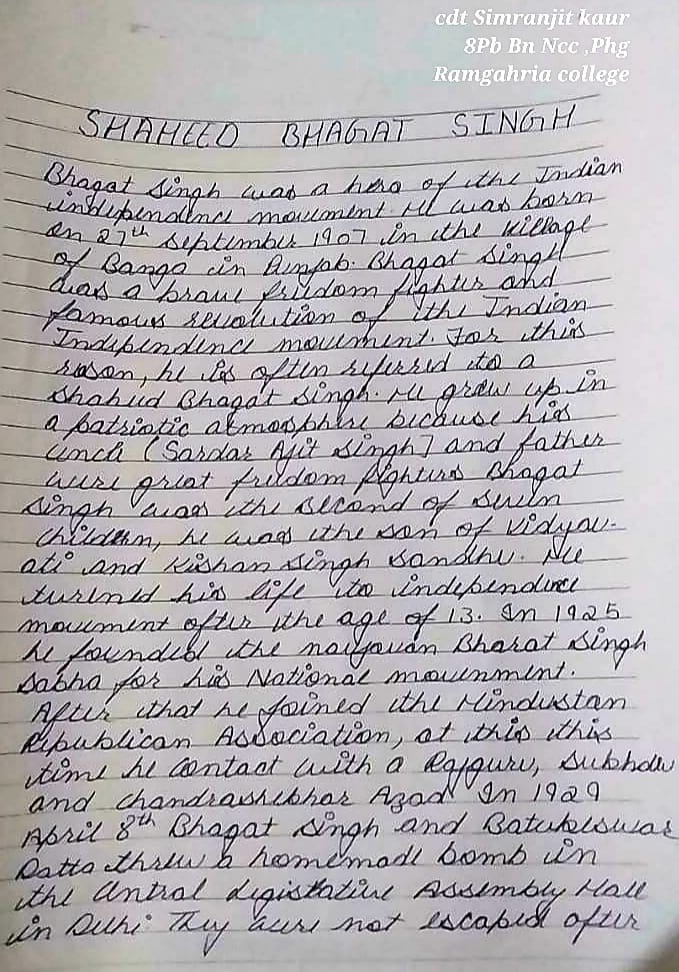 cdt Simranjit kaur
8Pb Bn Ncc ,Phg
Ramgahria college
SHAHEED BHAGAT SINGH
Bhagat Singh was a hero of the Indian
independence movement. He was born
on 27th September 1907 in the village
of Banga in Punjab. Bhagat Singh
was a brave freedom fighter and
famous revolution of the Indian
Independence movement. For this
reason, he is often referred to a
shaheed Bhagat Singh. He grew up in
a patriotic atmosphere because his
uncle (Sardar Ajit Singh] and father
were great freedom fighters Bhagat
Singh was the second of seven
children, he was the son of Vidyav-
ati and Kishan Singh Sandhu. He
turened his life to independence
movement after the age of 13. In 1925
he founded the naujavan Bharat Singh
Sabha for his National mouvnment.
After that he joined the Hindustan
Republican Association, at this this
time he contact with a Rajguru, Sukhdev
and chandrashekhar Azad In 1929
April 8th Bhagat Singh and Batukeswar
Datta threw a homemade bomb in
the Central Legistative Assembly Hall
in Delhi. They were not escaped after